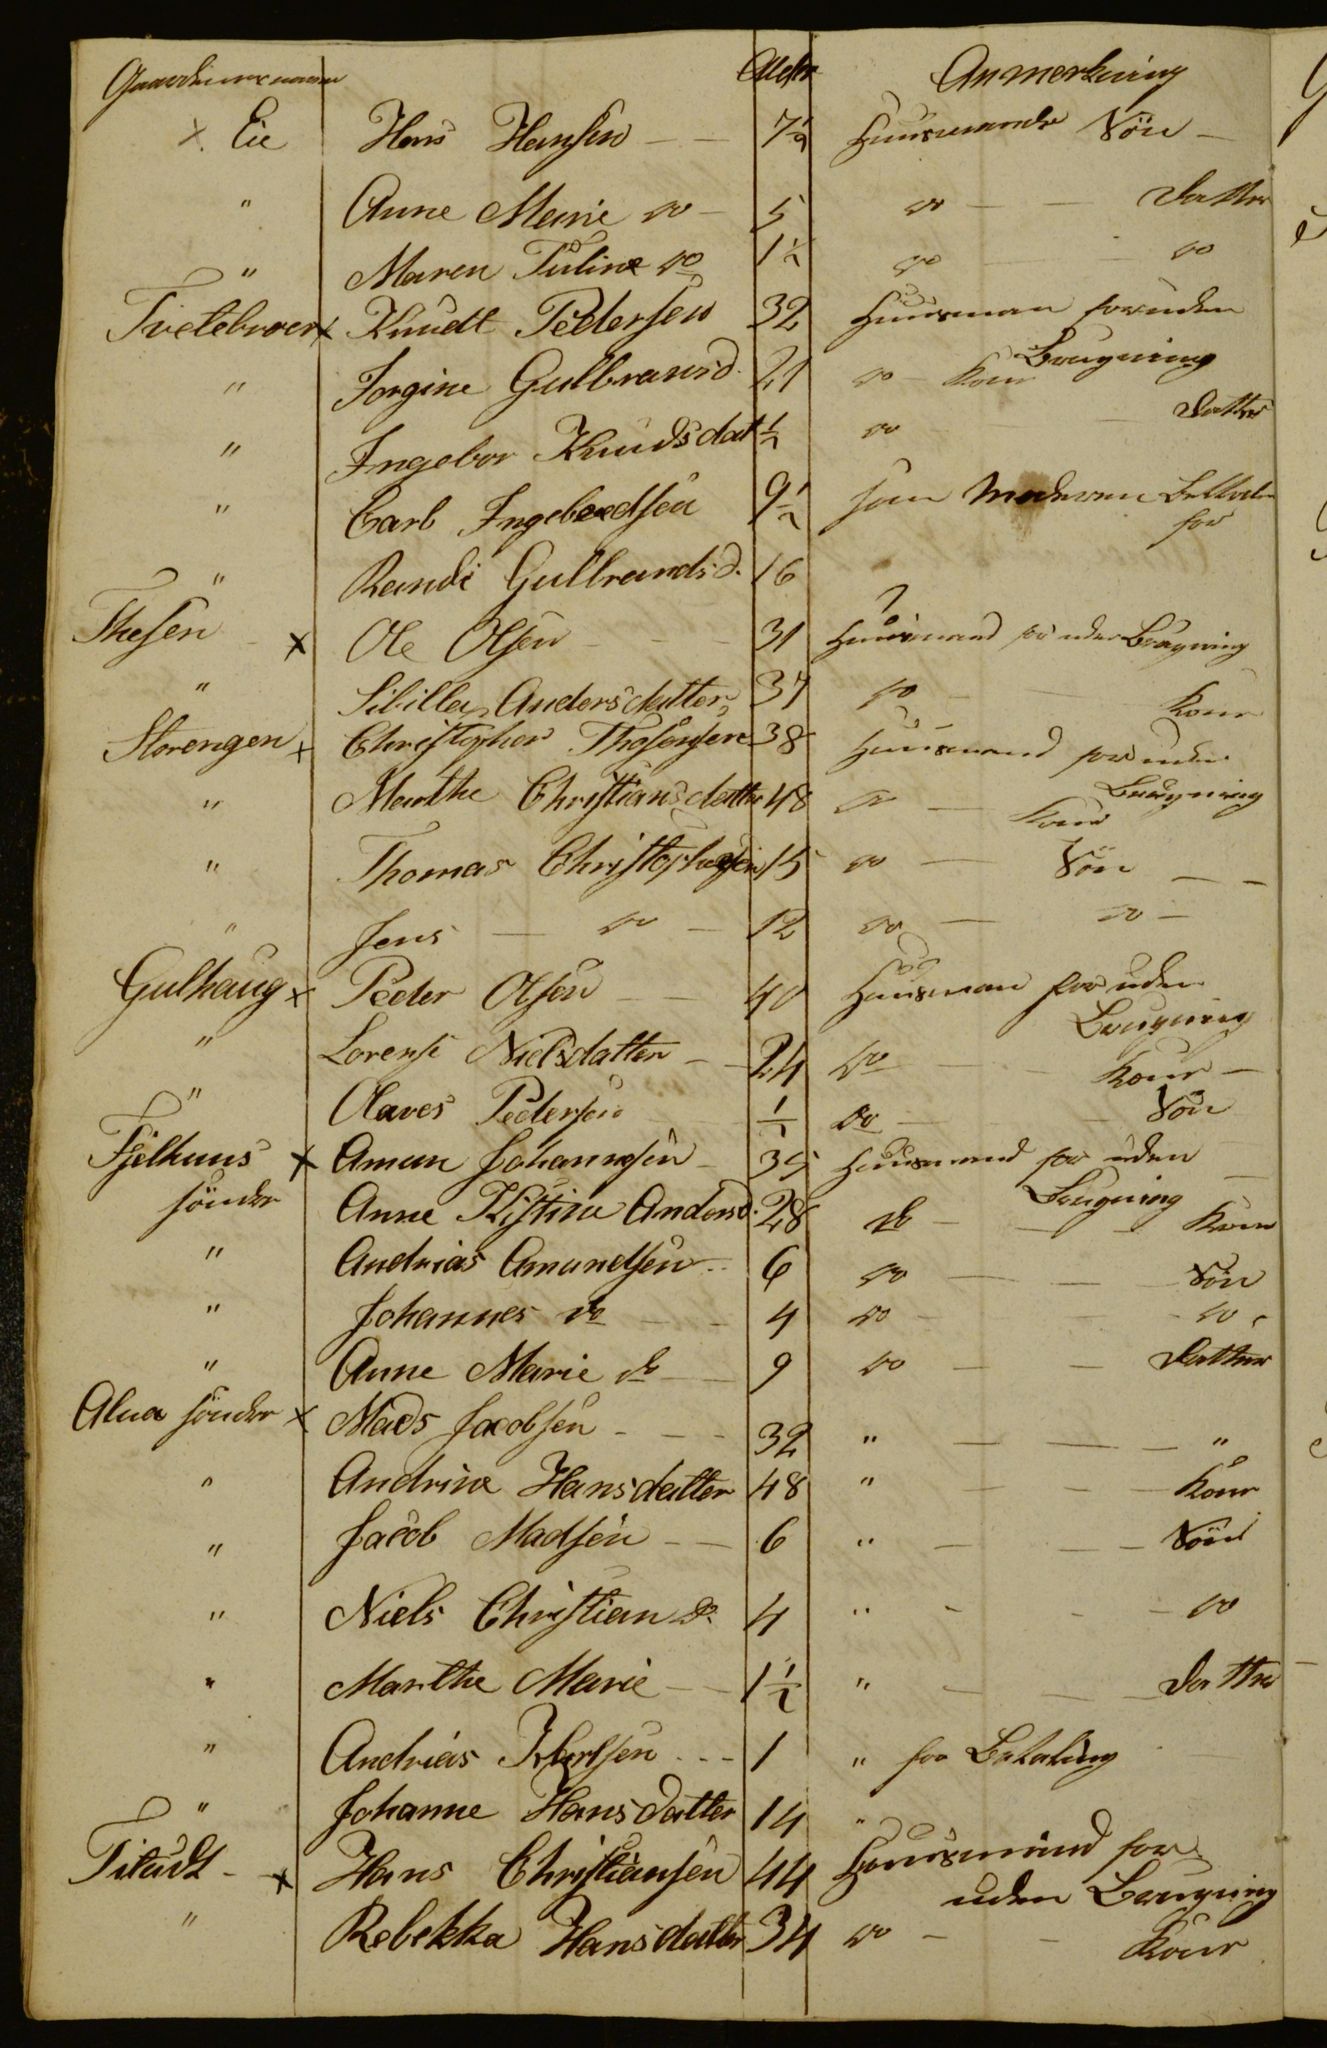 Gaardenes navne Alder Anmerkning
× Eie Hans Hansen — — 7½ Huusmands Sön —
" Anne Marie do — 5 do — — Datter
" Maren Tuline do 1½ do — do
Tvetebroen × Knudt Pedersen 32 Huusman for uden
Brugning
" Jorgine Gulbransd. 21 do — Kone
" Ingebor Knudsdat ½ do — Datter
" Carl Ingebredsen 9½ som Moderen Betaler
for
" Randi Gulbrandsd. 16
Thesen × Ole Olsen — 31 Huusmand for uden Brugning
" Sibilla Andersdatter 37 do — Kone
Storengen × Christopher 38 Huusmand for uden
Brugning
" Marthe Christiansdatter 48 do — Kone
" Thomas Christophersen 15 do — Sön — —
" Jens — do — 12 do — do —
Gulhaug × Peder Olsen — — 40 Huusman for uden
Brugning
" Lorense Nielsdatter — 24 do — Kone —
" Olaves Pedersen ½ do — Sön
Fjelhuus × Amun Johannesen — 35 Huusmand for uden —
Brugning
sönder Anne Kistine Andersd. 28 do — Kone
" Andrias Amundsen — 6 do — — Sön
" Johannes do — — 4 do — — do
" Anne Marie do — 9 do — — Datter
Alna sönder × Mads Jacobsen — — — 32 " — — — "
" Andrine Hansdatter 48 " — — — Kone
" Jacob Madsen — — 6 " — — — Sön
" Niels Christian do. 4 " — — — do
" Marthe Marie — — 1½ " — — — Datter
" Andrias — — 1 " for Betaling
" Johanne Hansdatter 14 "
Titudt — × Hans Christiansen 44 Huusmand for
uden Brugning
" Rebekka Hansdatter 34 do — — Kone